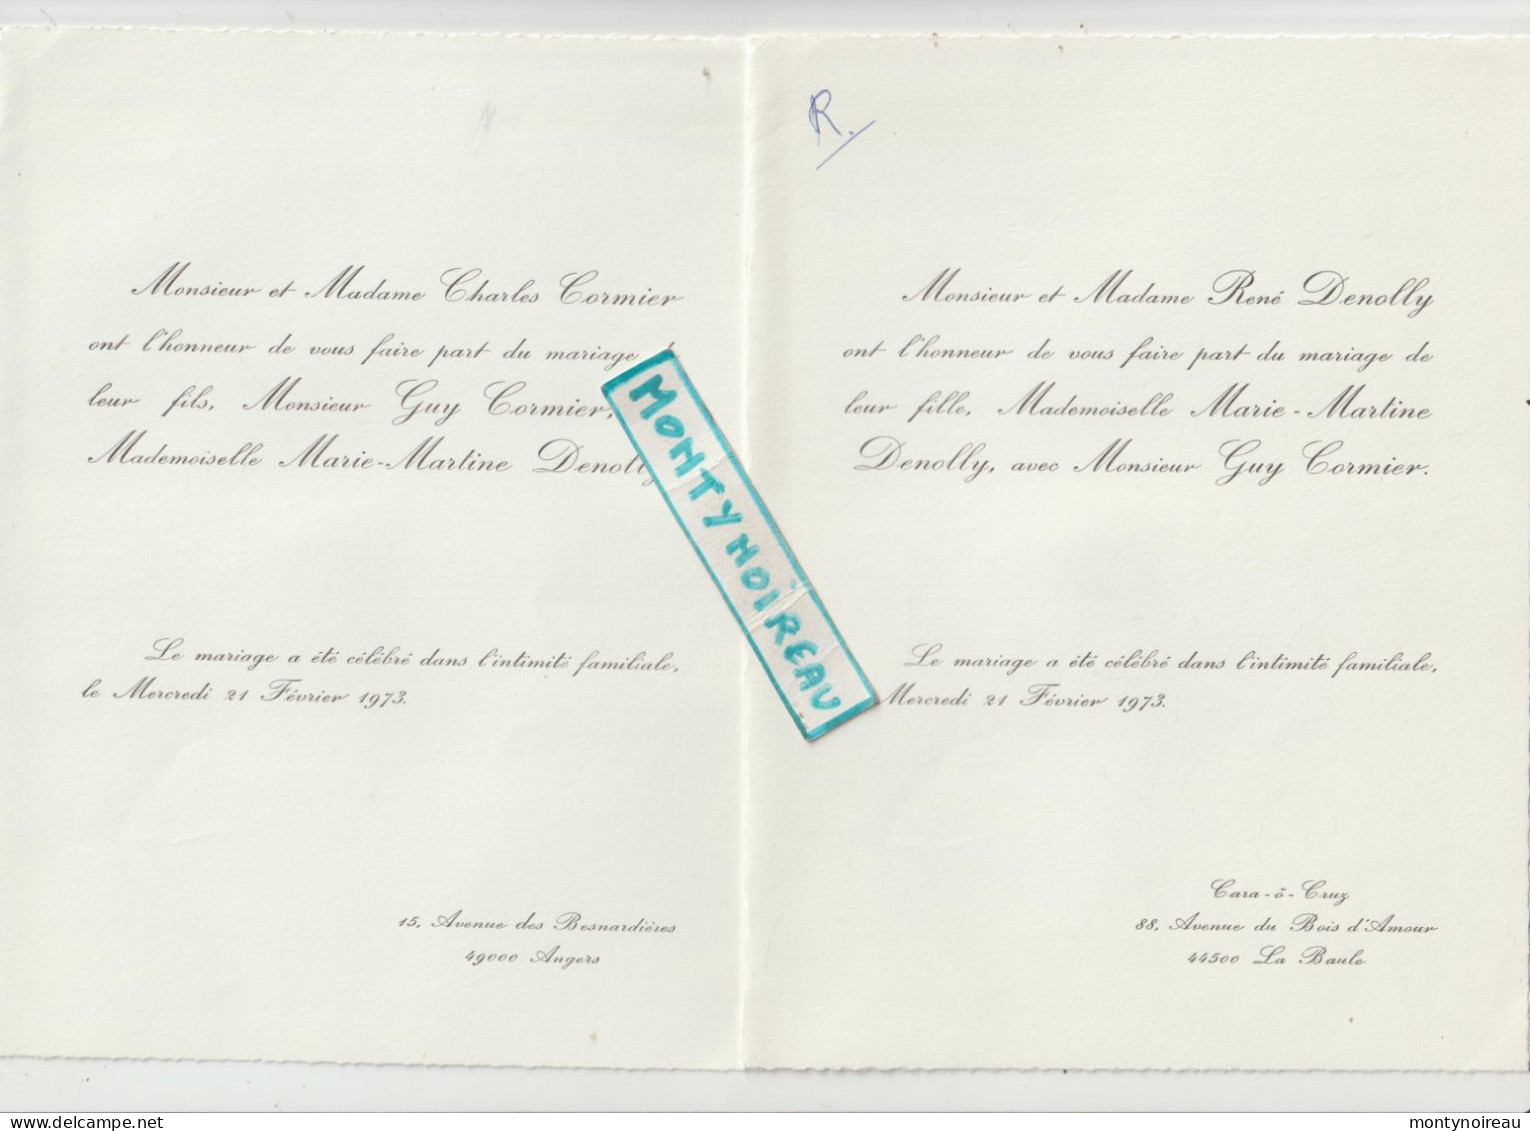 Monsieur et Madame Charles Cormier
ont l'honneur de vous faire part du mariage
leur fils, Monsieur Guy Cormier,
Mademoiselle Marie-Martine Denolly
Le mariage a été célébré dans l'intimité familiale,
le Mercredi 21 Février 1973.
15, Avenue des Besnardières
49000 Angers
MONTYNOIREAU
R.
Monsieur et Madame René Denolly
ont l'honneur de vous faire part du mariage de
leur fille, Mademoiselle Marie-Martine
Denolly, avec Monsieur Guy Cormier.
Le mariage a été célébré dans l'intimité familiale,
Mercredi 21 Février 1973.
Cara-ô-Cruz
88, Avenue du Bois d'Amour
44500 La Baule
delcampe.net
montynoireau